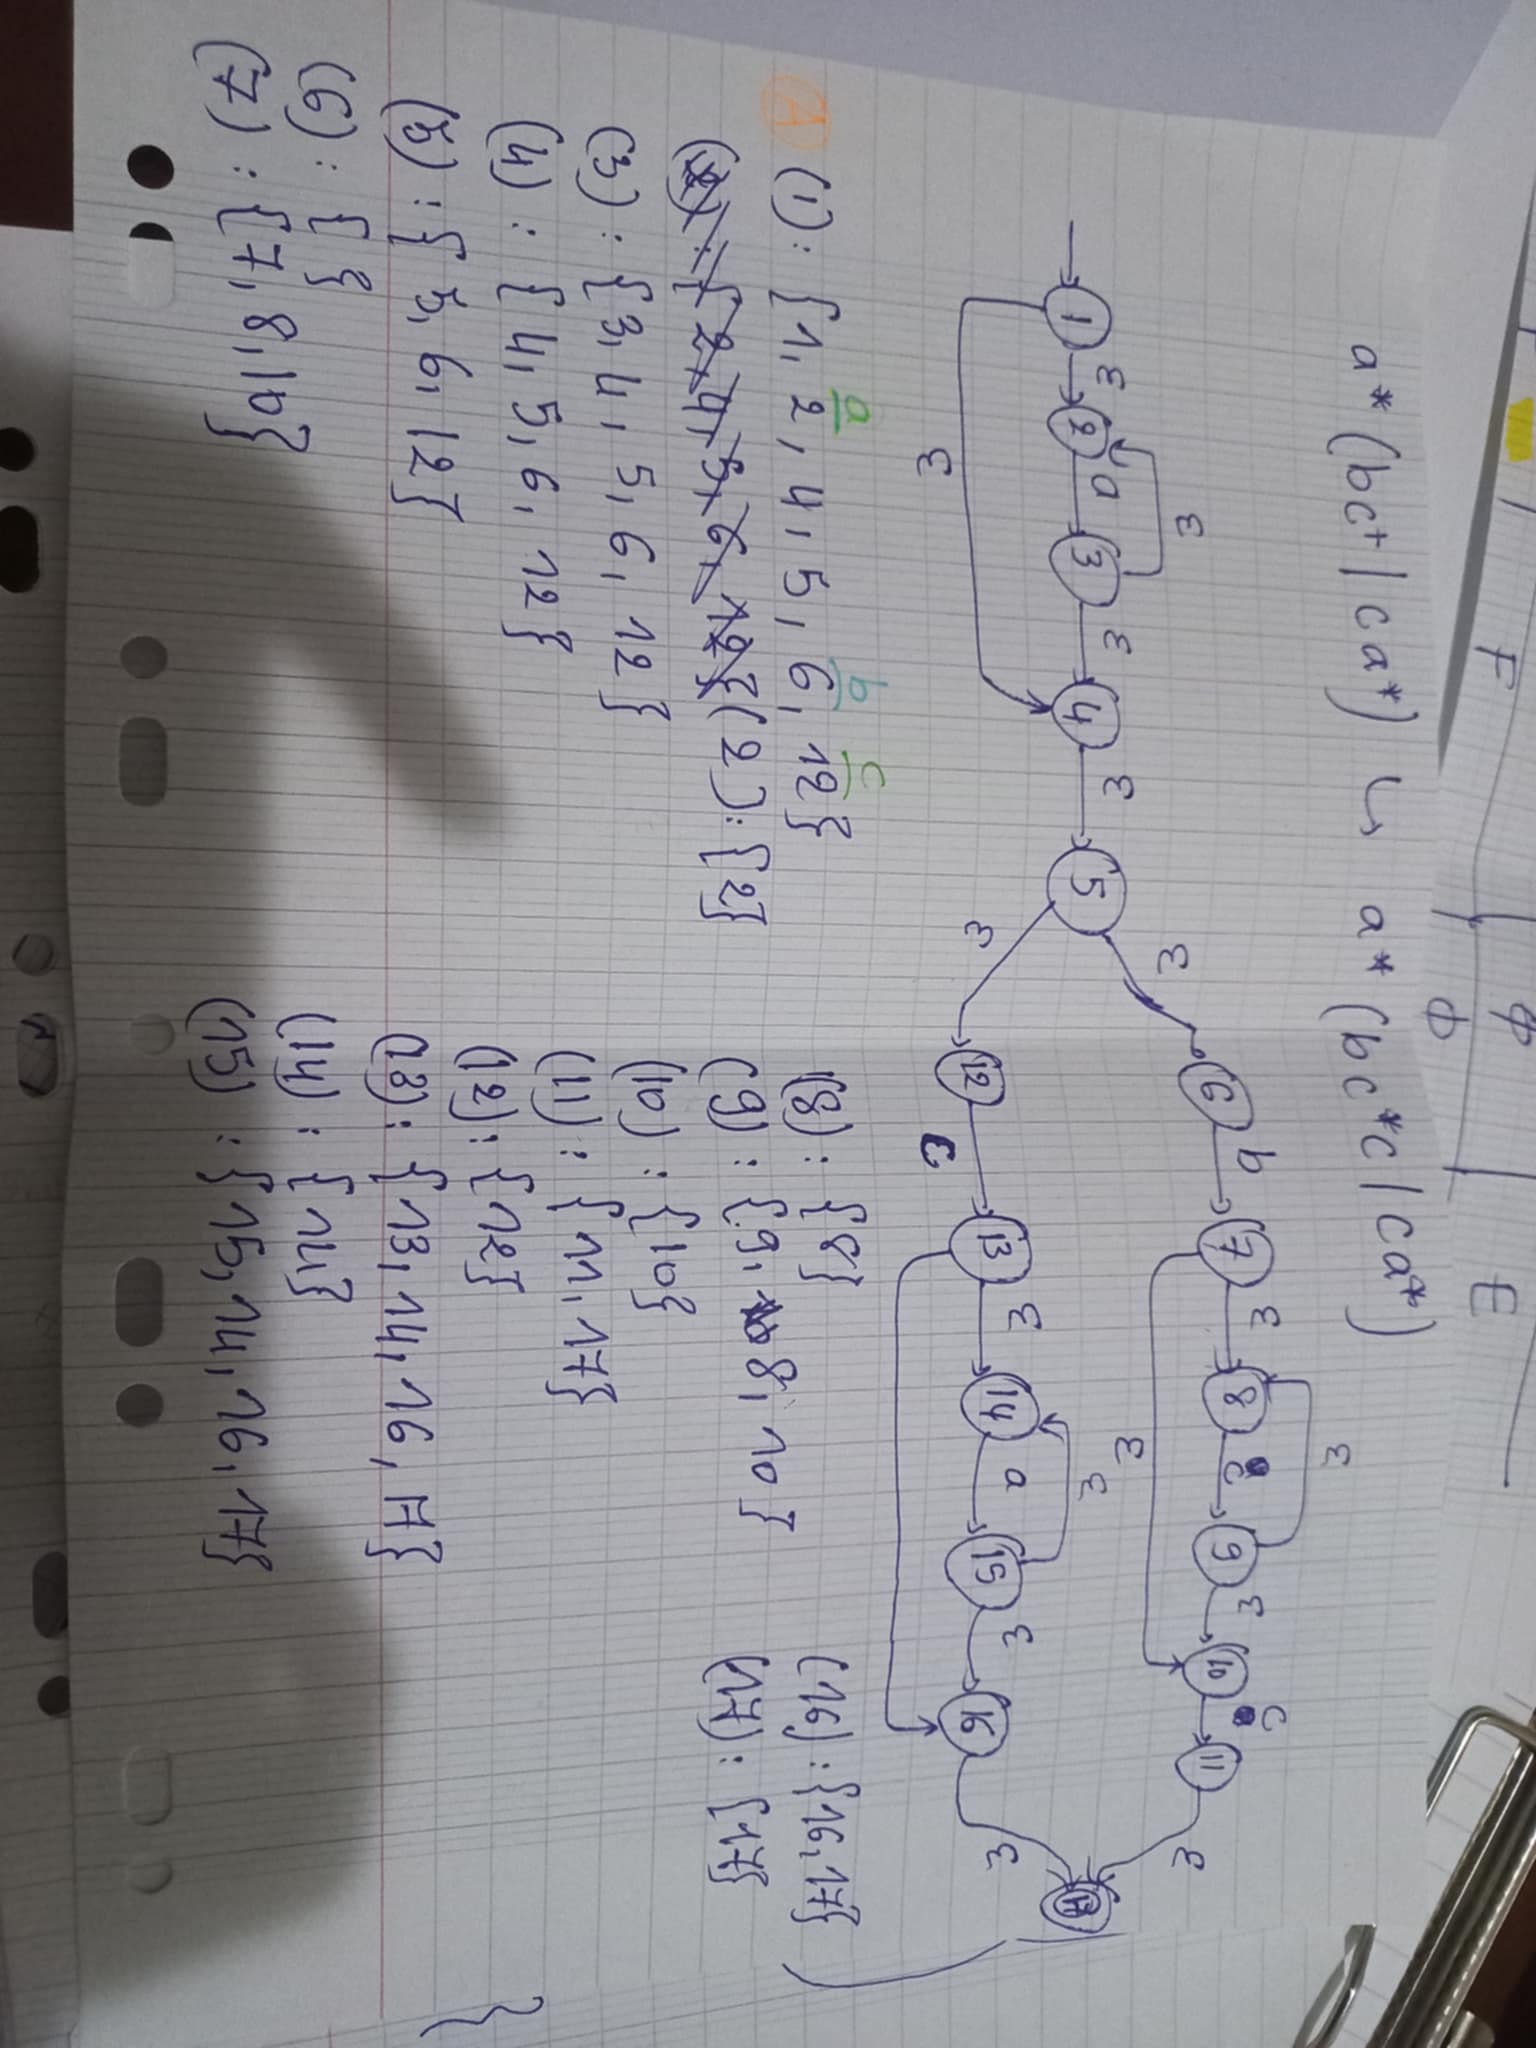 F
E
φ
φ
a* (bc+ | ca*) ↳ a* (bc*c | ca*)
ε
ε
ε
ε
1 ε 2 a 3 ε 4 ε 5
ε
6 b 7 ε 8 c 9 ε 10 c 11
ε
ε
ε
12 c 13 ε 14 a 15 ε 16
ε
ε
17
a b c
A (1): {1, 2, 4, 5, 6, 12}
(2): {2}
(3): {3, 4, 5, 6, 12}
(4): {4, 5, 6, 12}
(5): {5, 6, 12}
(6): { }
(7): {7, 8, 10}
(8): {8}
(9): {9, 8, 10}
(10): {10}
(11): {11, 17}
(12): {12}
(13): {13, 14, 16, 17}
(14): {14}
(15): {15, 14, 16, 17}
(16): {16, 17}
(17): {17}